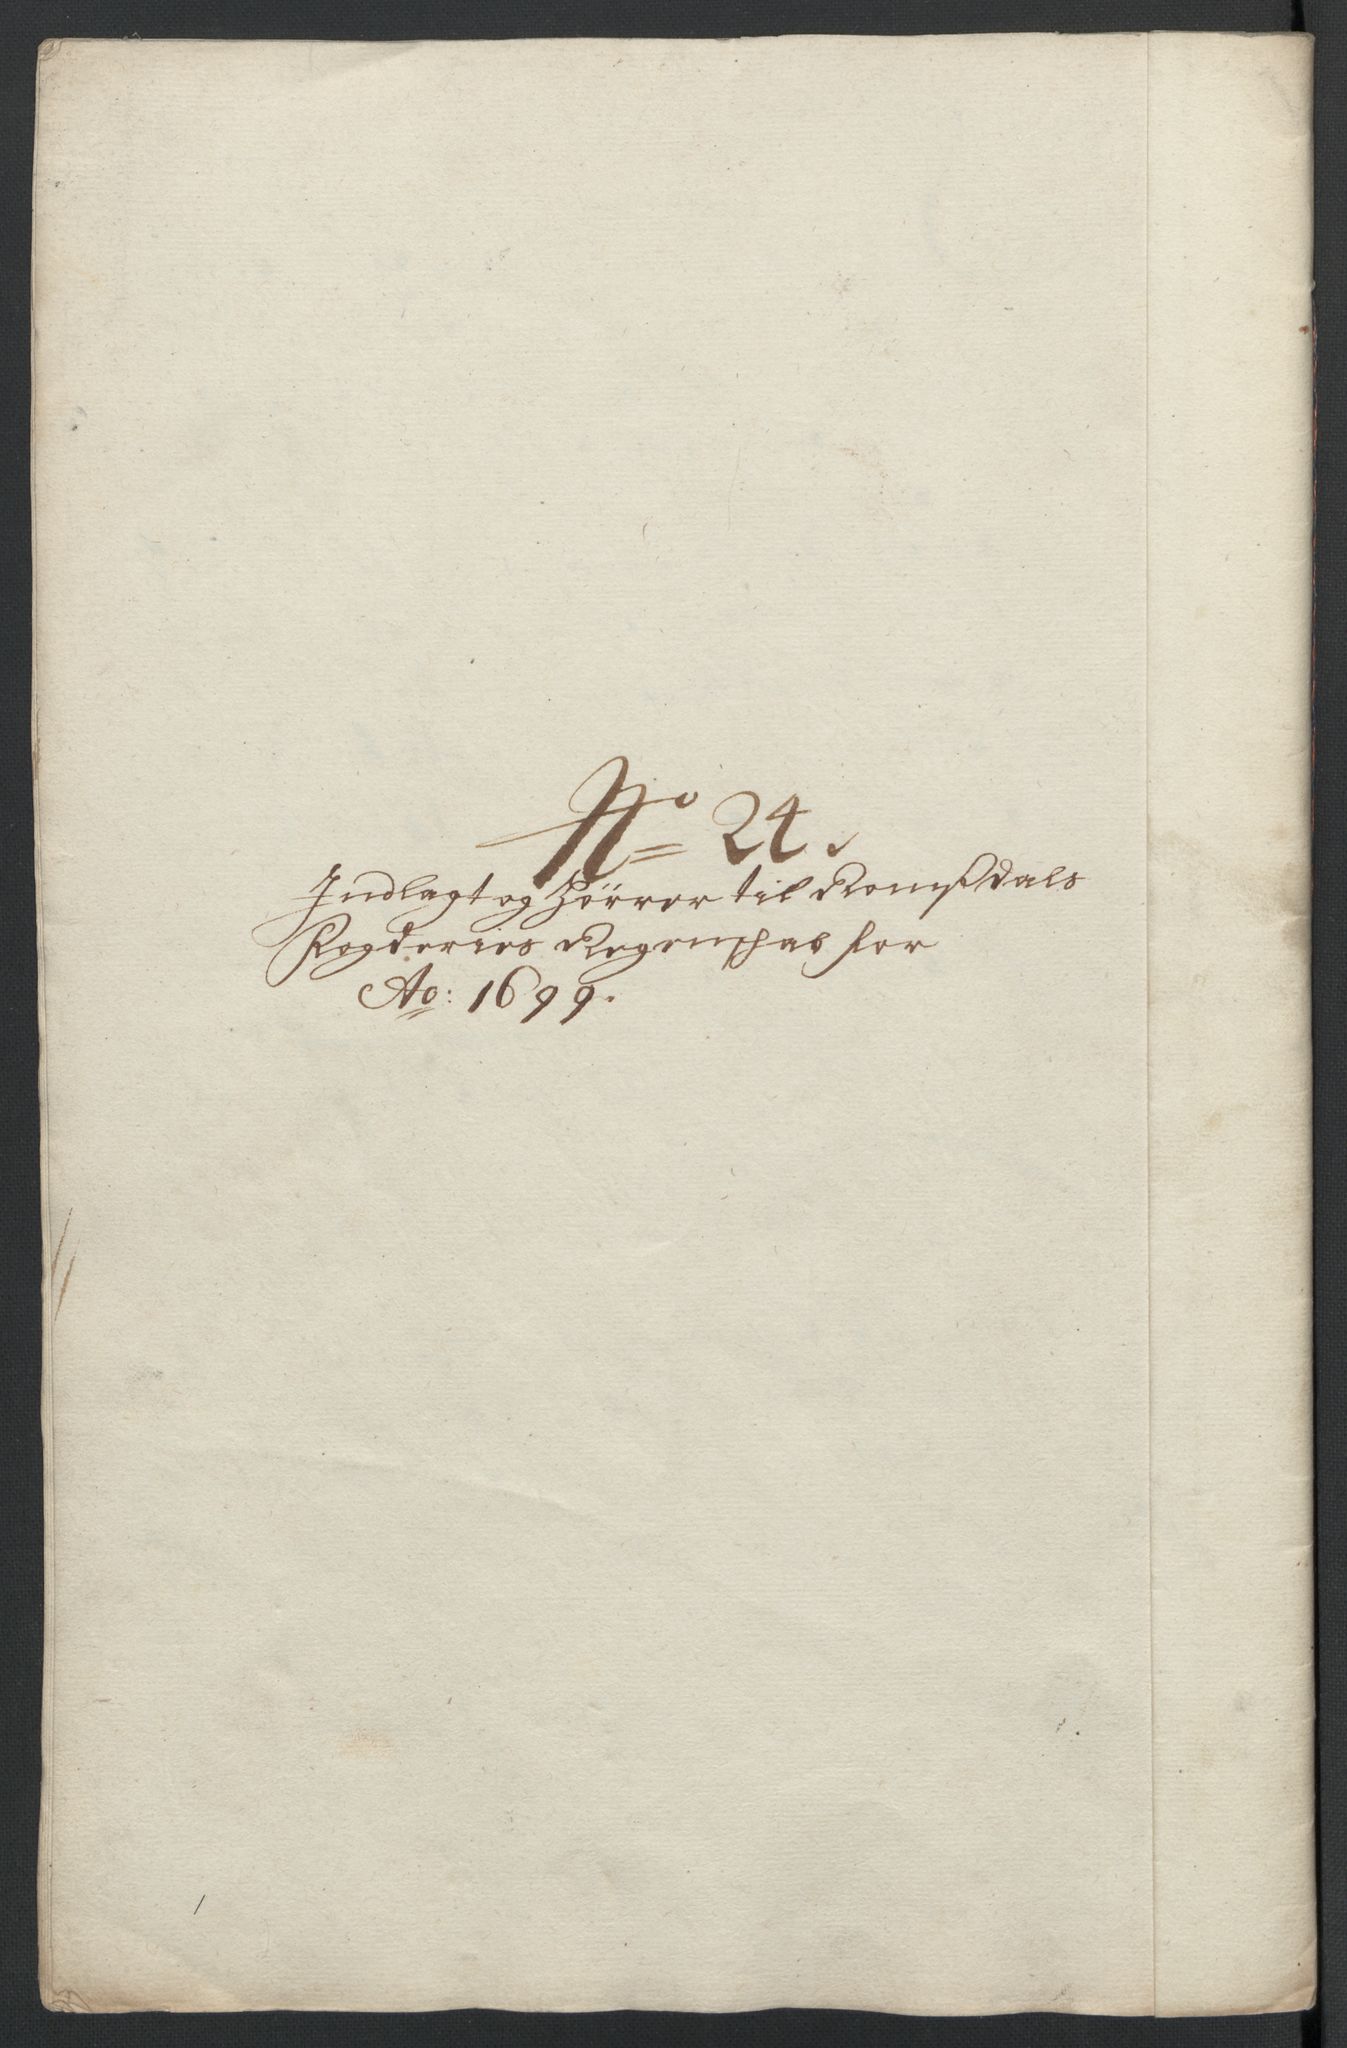 No= 24.
Indlagt og hörrer til Romßdals
Fogderies Regenschab for
Ao: 1699.